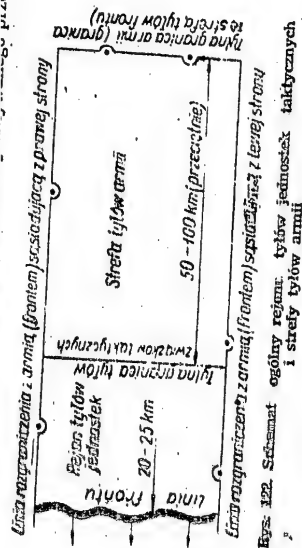 Linia rozgraniczenia z armią (frontem) sąsiadującą z prawej strony
Linia
frontu
Rejon tyłów
jednostek
20-25 km
Tylna granica tyłów
związków taktycznych
Strefa tyłów armii
50-100 km (przeciętnie)
Tylna granica armii (granica
ze strefą tyłów frontu)
Linia rozgraniczenia z armią (frontem) sąsiadującą z lewej strony
Rys. 122. Schemat ogólny rejonu tyłów jednostek taktycznych
i strefy tyłów armii